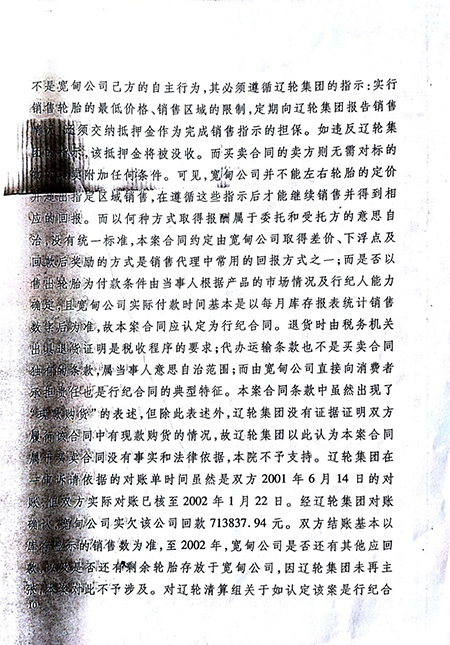 不是宽甸公司己方的自主行为,其必须遵循辽轮集团的指示:实行
销售轮胎的最低价格、销售区域的限制,定期向辽轮集团报告销售
须交纳抵押金作为完成销售指示的担保。如违反辽轮集
,该抵押金将被没收。而买卖合同的卖方则无需对标的
附加任何条件。可见,宽甸公司并不能左右轮胎的定价
指定区域销售,在遵循这些指示后才能继续销售并得到相
应的回报。而以何种方式取得报酬属于委托和受托方的意思自
治,没有统一标准,本案合同约定由宽甸公司取得差价、下浮点及
回款后奖励的方式是销售代理中常用的回报方式之一;而是否以
售出轮胎为付款条件由当事人根据产品的市场情况及行纪人能力
确定,且宽甸公司实际付款时间基本是以每月库存报表统计销售
数量后为准,故本案合同应认定为行纪合同。退货时由税务机关
出具退货证明是税收程序的要求;代办运输条款也不是买卖合同
的条款,属当事人意思自治范围;而由宽甸公司直接向消费者
承担责任也是行纪合同的典型特征。本案合同条款中虽然出现了
购货”的表述,但除此表述外,辽轮集团没有证据证明双方
合同中有现款购货的情况,故辽轮集团以此认为本案合同
属于买卖合同没有事实和法律依据,本院不予支持。辽轮集团在
诉请依据的对账单时间虽然是双方 2001 年 6 月 14 日的对
账,但双方实际对账已核至 2002 年 1 月 22 日。经辽轮集团对账
确认,宽甸公司实欠该公司回款 713837.94 元。双方结账基本以
的销售数为准,至 2002 年,宽甸公司是否还有其他应回
是否还有剩余轮胎存放于宽甸公司,因辽轮集团未再主
此不予涉及。对辽轮清算组关于如认定该案是行纪合